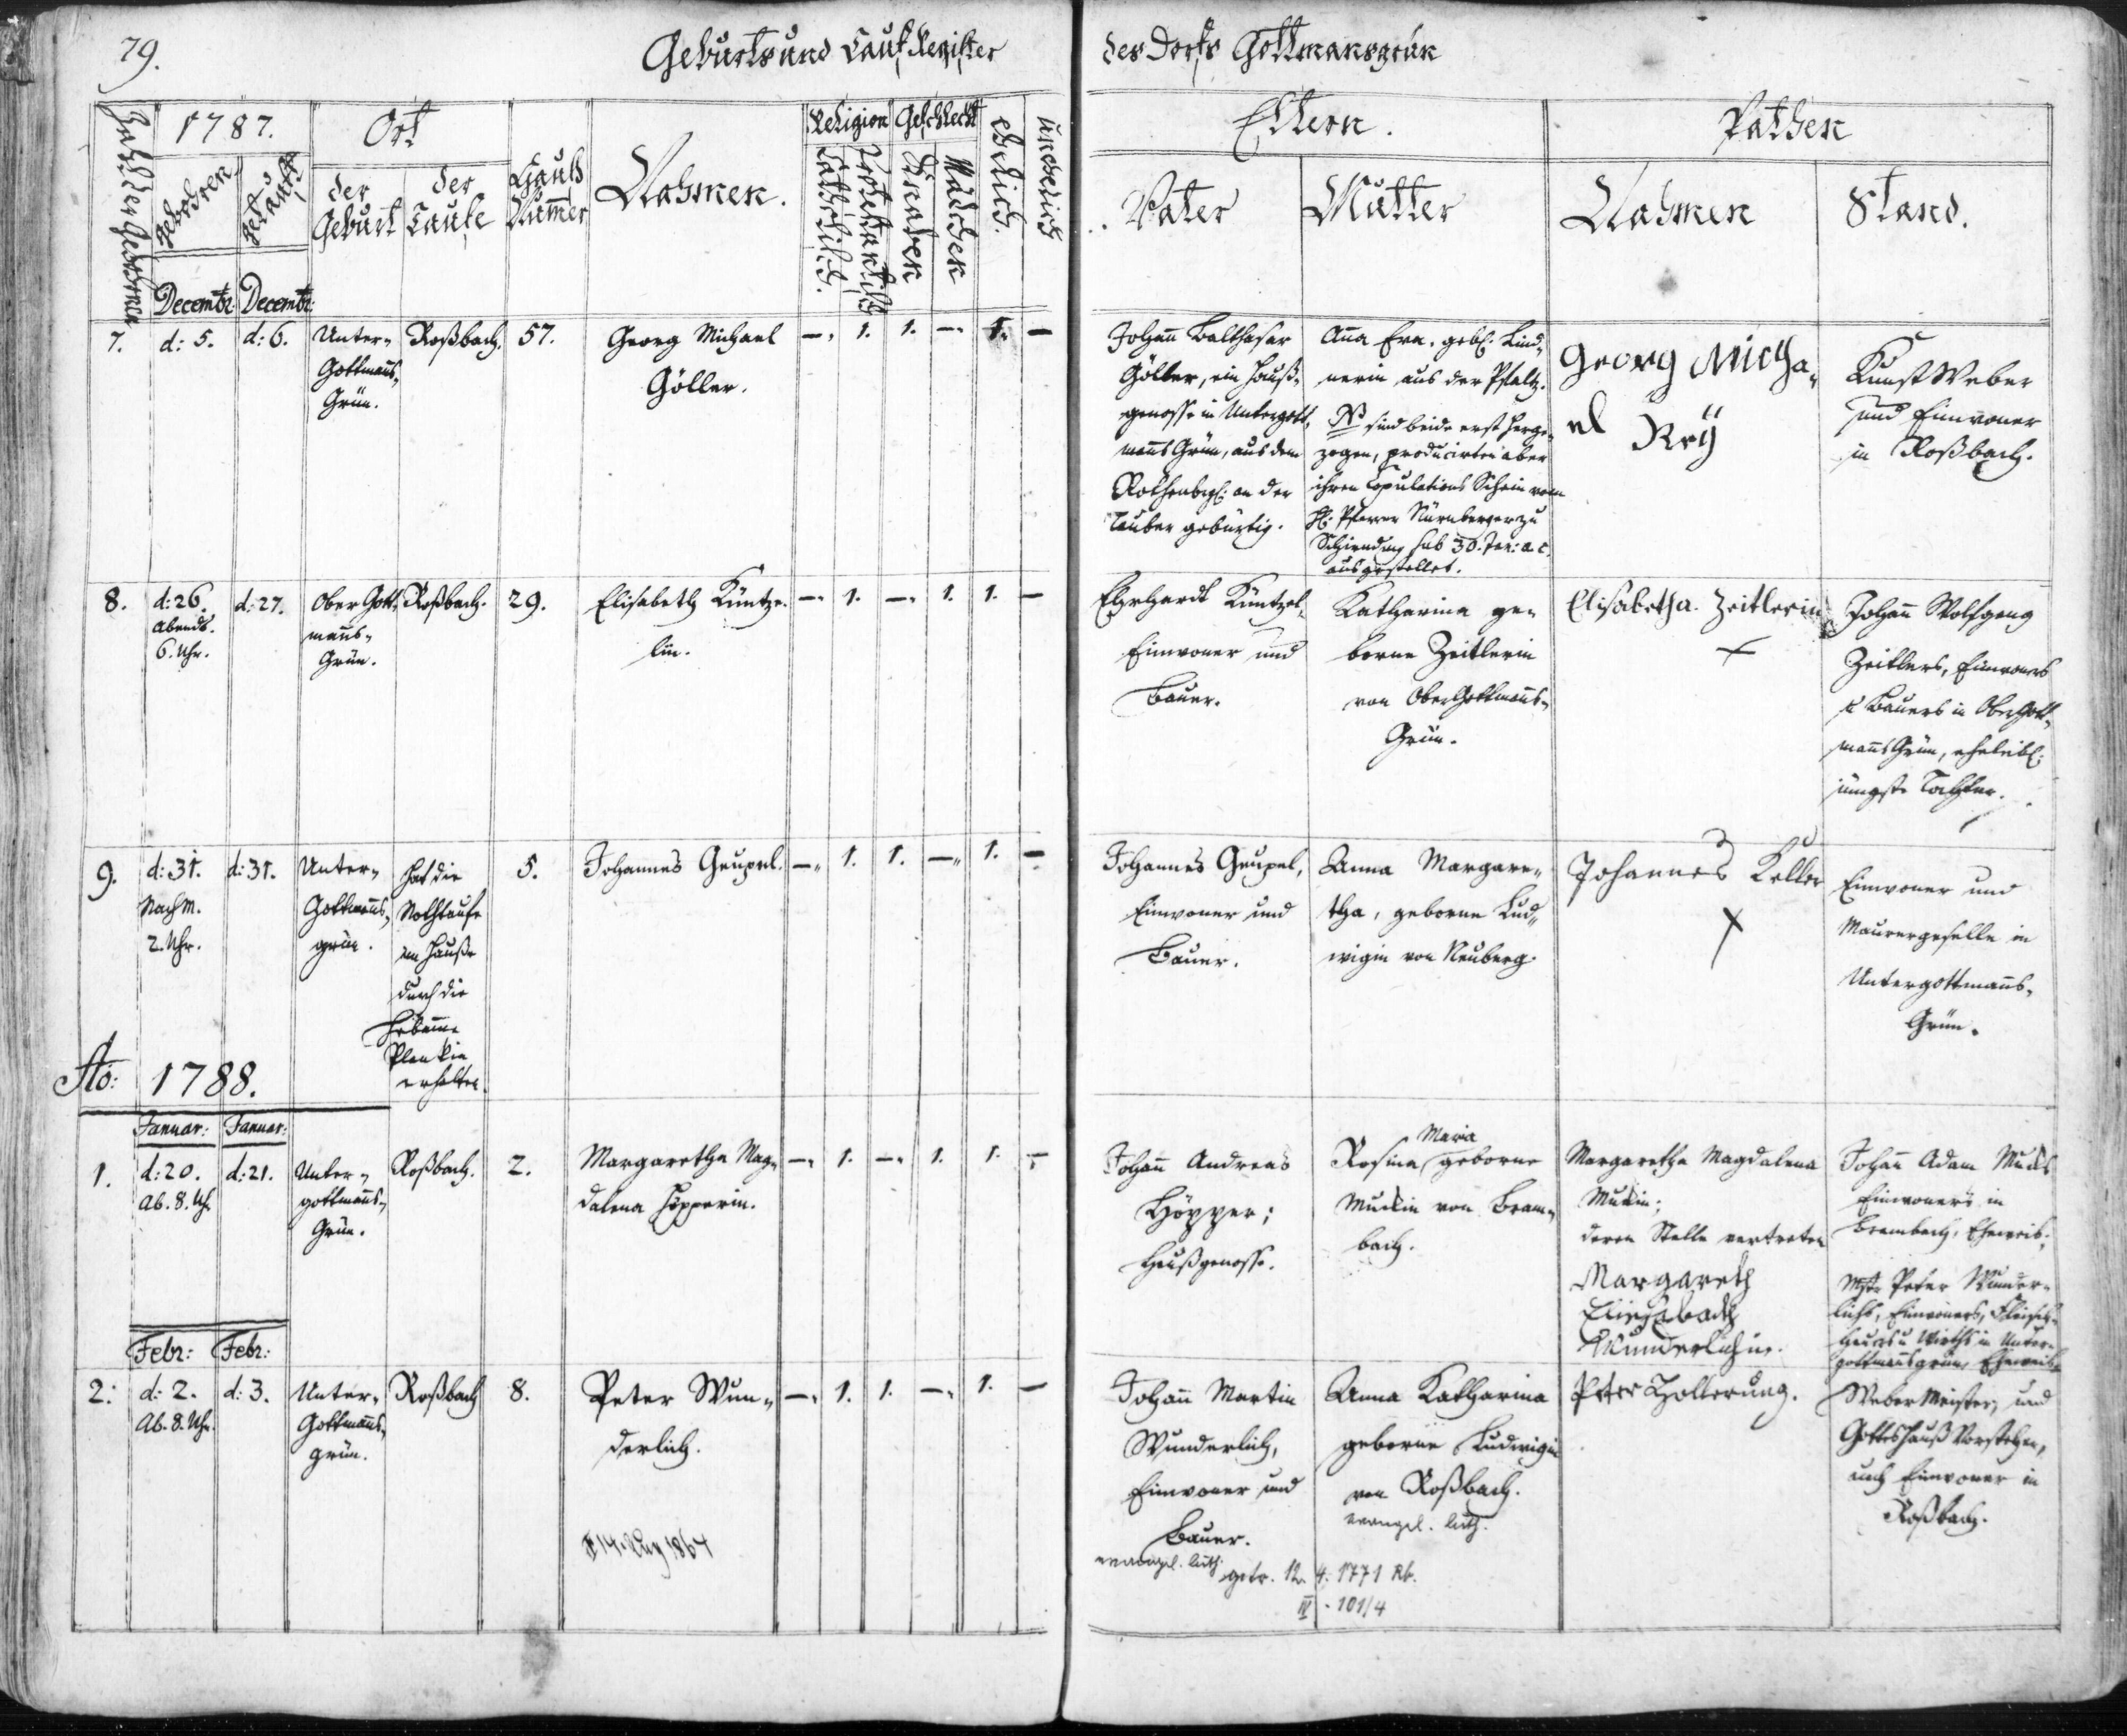 79.
Geburts und Tauf Register
des Dorfs Gottmansgrün
Zahl der Gebohrnen
1787.
Gebohren
Getauft
Decembr: Decembr:
Ort
der Geburt
der Taufe
Hauß Nummer
Nahmen.
Religion
Catholisch.
Protestantisch
Geschlecht
Knaben
Mädchen
Ehelich.
Unehelich
Eltern.
Vater
Mutter
Pathen
Nahmen
Stand.
7.
d: 5.
d: 6.
Unter-
Gottmanns-
Grün.
Roßbach.
57.
Georg Michael
Göller.
— 1. 1. — 1. —
Johann Balthasar
Göller, ein Hauß-
genosse in Untergott-
manns Grün, aus dem
Rothenbgl: an der
Tauber gebürtig.
Anna Eva. gebl: Lind-
nerin aus der Pfaltz.
NB sind beide erst herge-
zogen, producirten aber
ihren Copulations Schein vom
H: Pfarrer Nürnberger zu
Schirnding sub 30. Jan: a. c.
ausgestellet.
Georg Micha-
el Rey
Kunst Weber
und Einwoner
in Roßbach.
8.
d: 26.
Abends.
6. Uhr.
d: 27.
Ober Gott-
manns-
Grün.
Roßbach.
29.
Elisabeth Küntze-
lin.
— 1. — 1. 1. —
Ehrhardt Küntzel,
Einwoner und
Bauer.
Katharina ge-
borne Zeitlerin
von Ober Gottmanns-
Grün.
Elisabetha Zeitlerin
+
Johann Wolfgang
Zeitlers, Einwoners
u Bauers in Ober Gott-
manns Grün, eheleibl:
jüngste Tochter.
9.
d: 31.
Nach M.
2. Uhr.
d: 31.
Unter-
Gottmanns-
grün.
hat die
Nothtaufe
im Hause
durch die
Hebamme
erhalten.
5.
Johannes Geupel.
— 1. 1. — 1. —
Johannes Geupel,
Einwoner und
Bauer.
Anna Margare-
tha, geborne Lud-
wigin von Neuberg.
Johannes Keller
X
Einwoner und
Maurergeselle in
Untergottmanns-
Grün.
Ao: 1788.
Januar: Januar:
1.
d: 20.
Ab. 8. Uh.
d: 21.
Unter-
gottmanns-
Grün.
Roßbach.
2.
Margaretha Mag-
dalena Höpperin.
— 1. — 1. 1. —
Johann Andreas
Höpper;
Haußgenosse.
Maria
Rosina geborne
Muckin von Bram-
bach.
Margaretha Magdalena
Muckin;
deren Stelle vertreten
Margareth
Elisabath
Wunderlichin.
Johann Adam Mucks
Einwoners in
Brambach, Eheweib.
Mstr Peter Wunder-
lichs, Einwoners, Fleisch-
hauers u Wirths in Unter-
gottmannsgrün, Eheweib
Febr: Febr:
2.
d: 2.
Ab. 8. Uhr.
d: 3.
Unter-
Gottmanns-
grün.
Roßbach
8.
Peter Wun-
derlich.
— 1. 1. — 1. —
14. Aug 1864
Johann Martin
Wunderlich,
Einwoner und
Bauer.
evangel. luth.
Anna Katharina
geborne Ludwigin
von Roßbach.
evangel. luth.
getr. 12. 4. 1771 Rb.
IV - 101/4
Peter Hollerung.
Weber Meister, und
Gotteshauß Vorsteher,
auch Einwoner in
Roßbach.